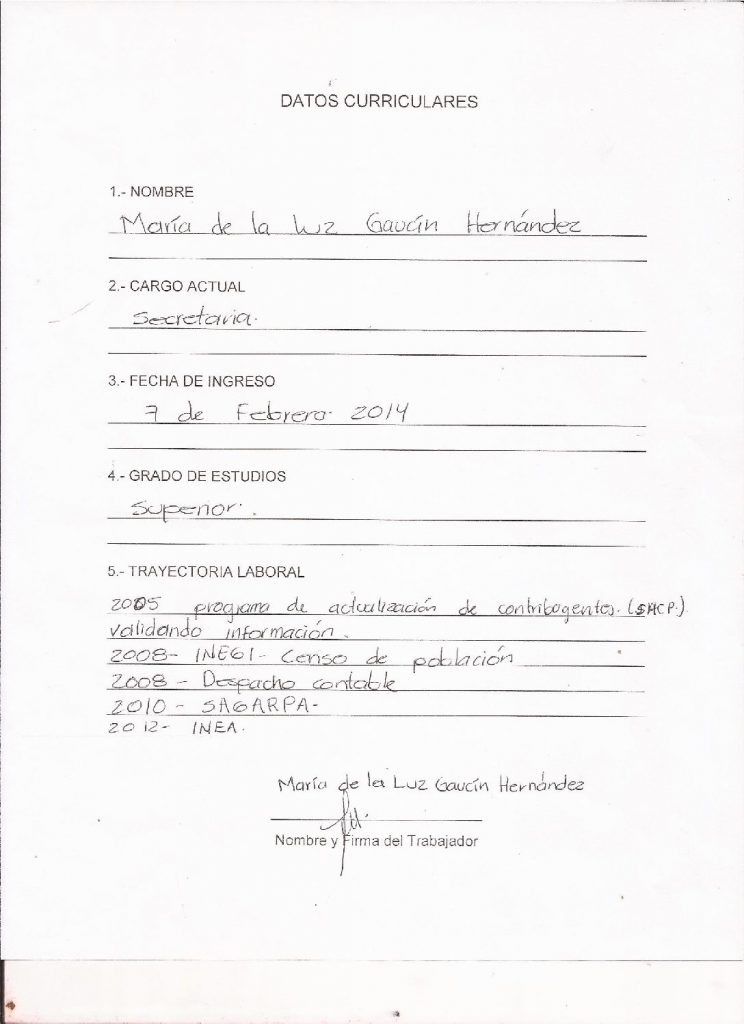 DATOS CURRICULARES
1.- NOMBRE
María de la Luz Gaucín Hernández
2.- CARGO ACTUAL
Secretaria.
3.- FECHA DE INGRESO
7 de Febrero. 2014
4.- GRADO DE ESTUDIOS
Superior.
5.- TRAYECTORIA LABORAL
2005 programa de actualización de contribogentes. (SHCP.)
validando información.
2008- INEGI- Censo de población
2008 - Despacho contable
2010 - SAGARPA-
2012- INEA.
María de la Luz Gaucín Hernández
Nombre y Firma del Trabajador